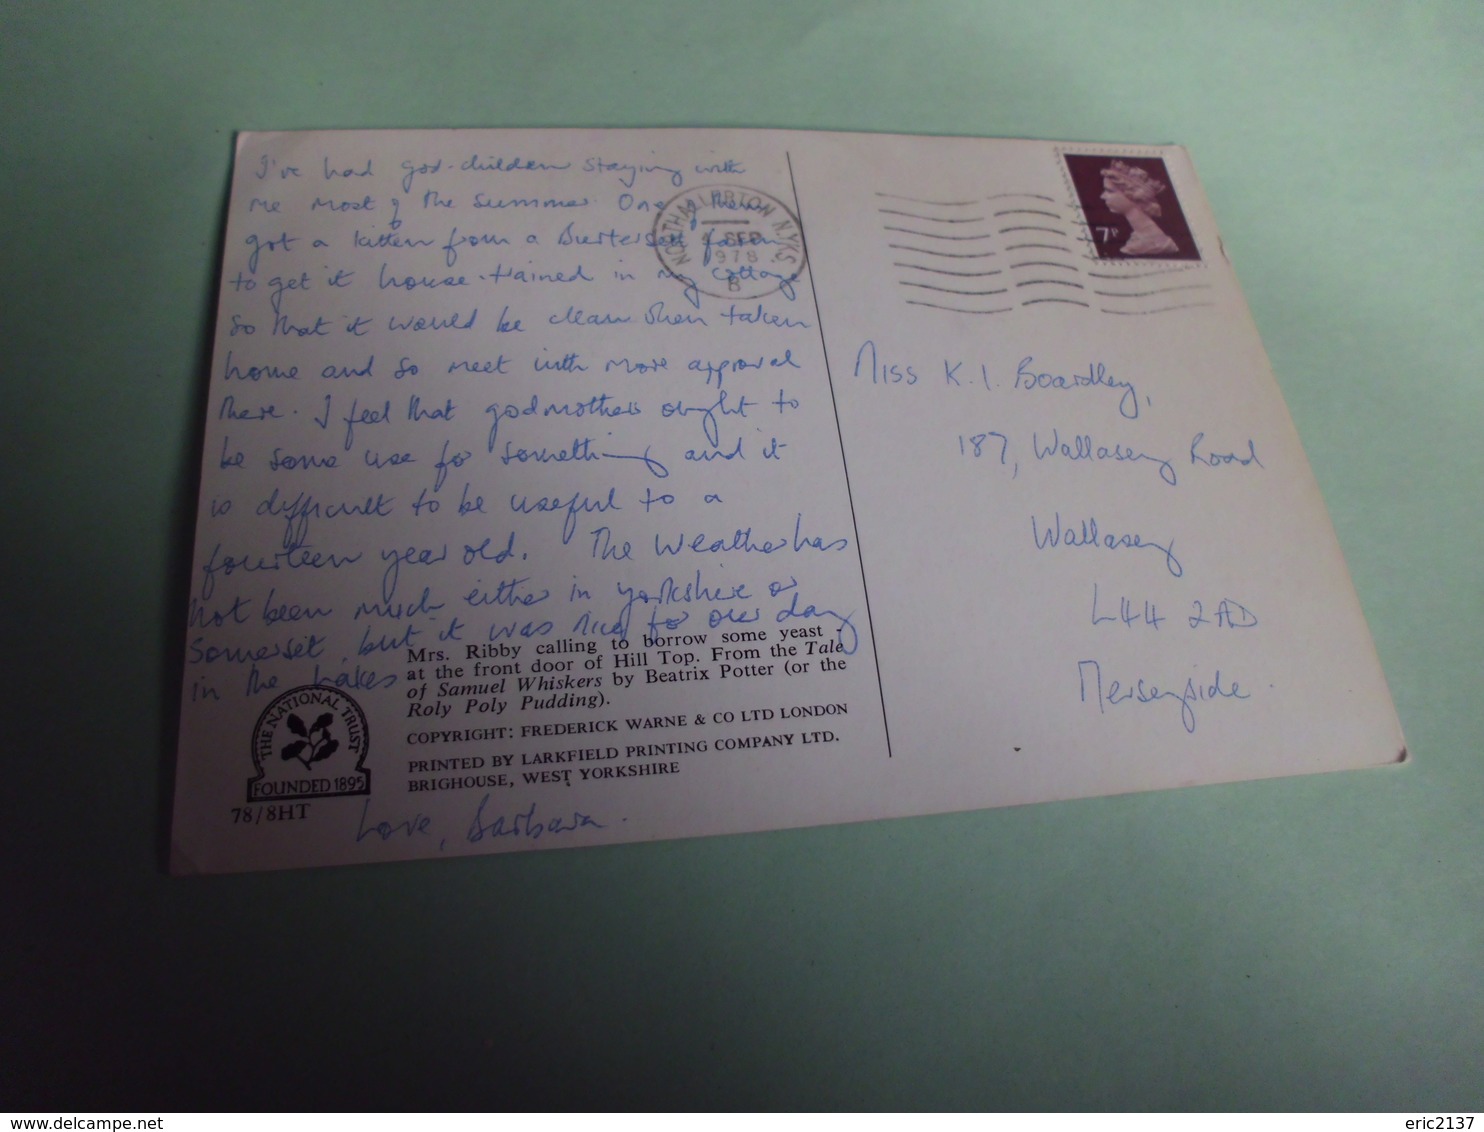 I've had god-children staying with
me most of the summer. One of them
got a kitten from a farm
to get it house-trained in my cottage
so that it would be clean when taken
home and so meet with more approval
there. I feel that godmothers ought to
be some use for something and it
is difficult to be useful to a
fourteen year old. The weather has
not been much either in Yorkshire or
Somerset, but it was nice for our day
in the Lakes
Mrs. Ribby calling to borrow some yeast -
at the front door of Hill Top. From the Tale
of Samuel Whiskers by Beatrix Potter (or the
Roly Poly Pudding).
COPYRIGHT: FREDERICK WARNE & CO LTD LONDON
PRINTED BY LARKFIELD PRINTING COMPANY LTD.
BRIGHOUSE, WEST YORKSHIRE
THE NATIONAL TRUST
FOUNDED 1895
78/8HT
Love, Barbara.
NORTHALLERTON N. YKS
SEP
1978
B
7P
Miss K. I. Boardley,
187, Wallasey Road
Wallasey
L44 2AD
Merseyside.
eric2137